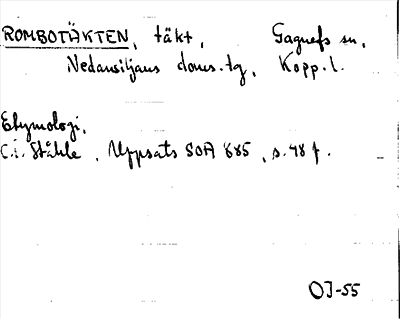 ROMBOTÄKTEN, täkt, Gagnefs sn,
Nedansiljans doms.tg, Kopp.l.
Etymologi,
C.I. Ståhle, Uppsats SOA 685, s.48 f.
OJ-55